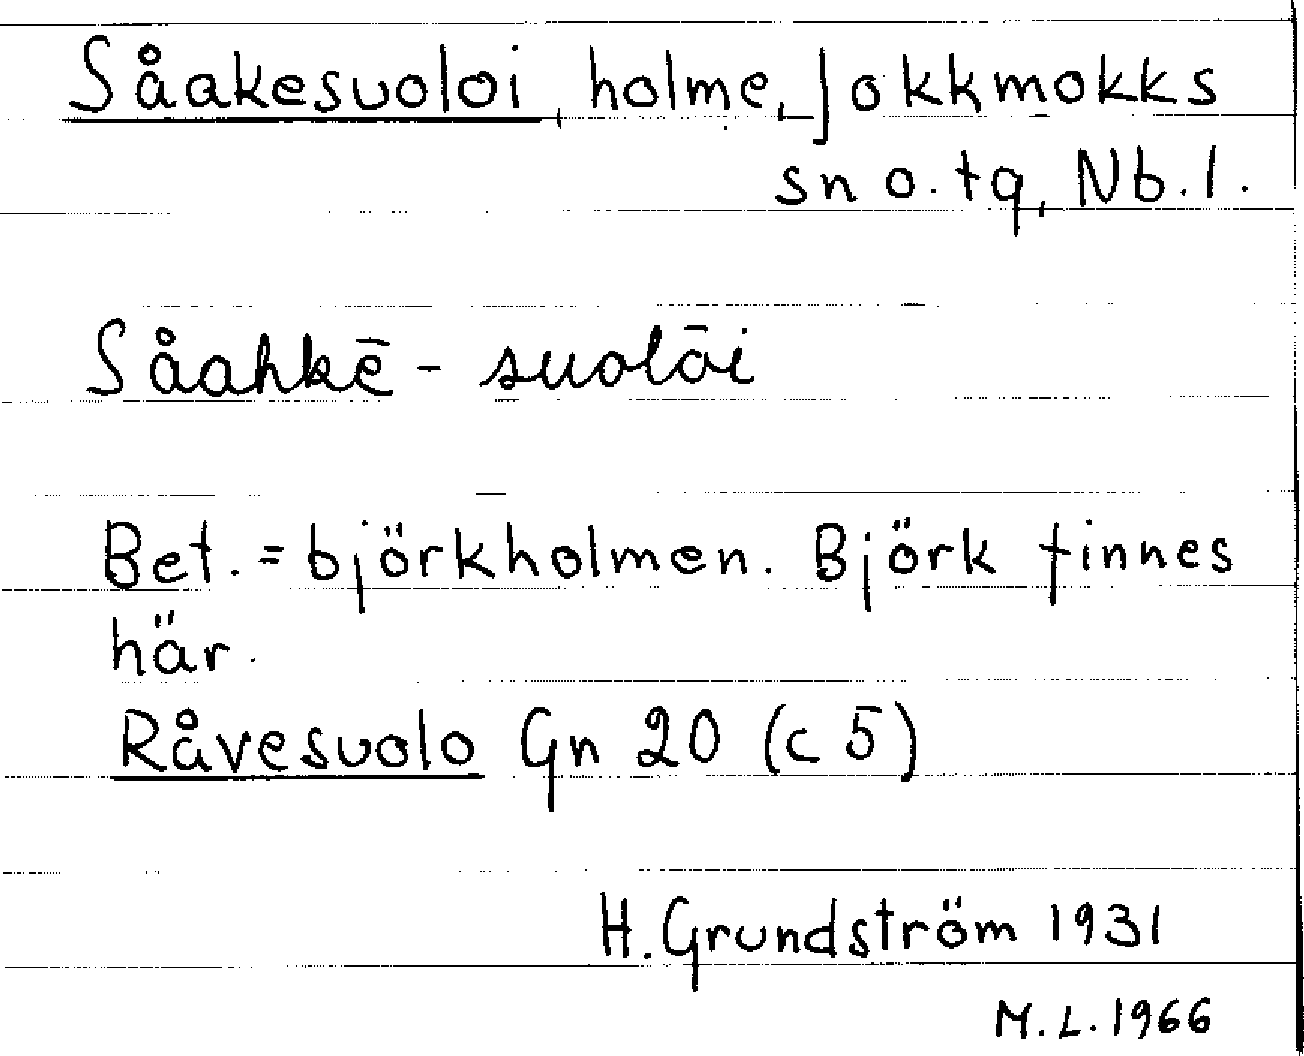 Såakesuoloi, holme, Jokkmokks
sn o. tg, Nb. l.
Såahkē - suolāi
Bet. = björkholmen. Björk finnes
här.
Råvesuolo Gn 20 (c 5)
H. Grundström 1931
M. L. 1966